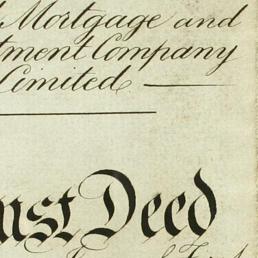 Mortgage and
tment Company
Limited
ust Deed